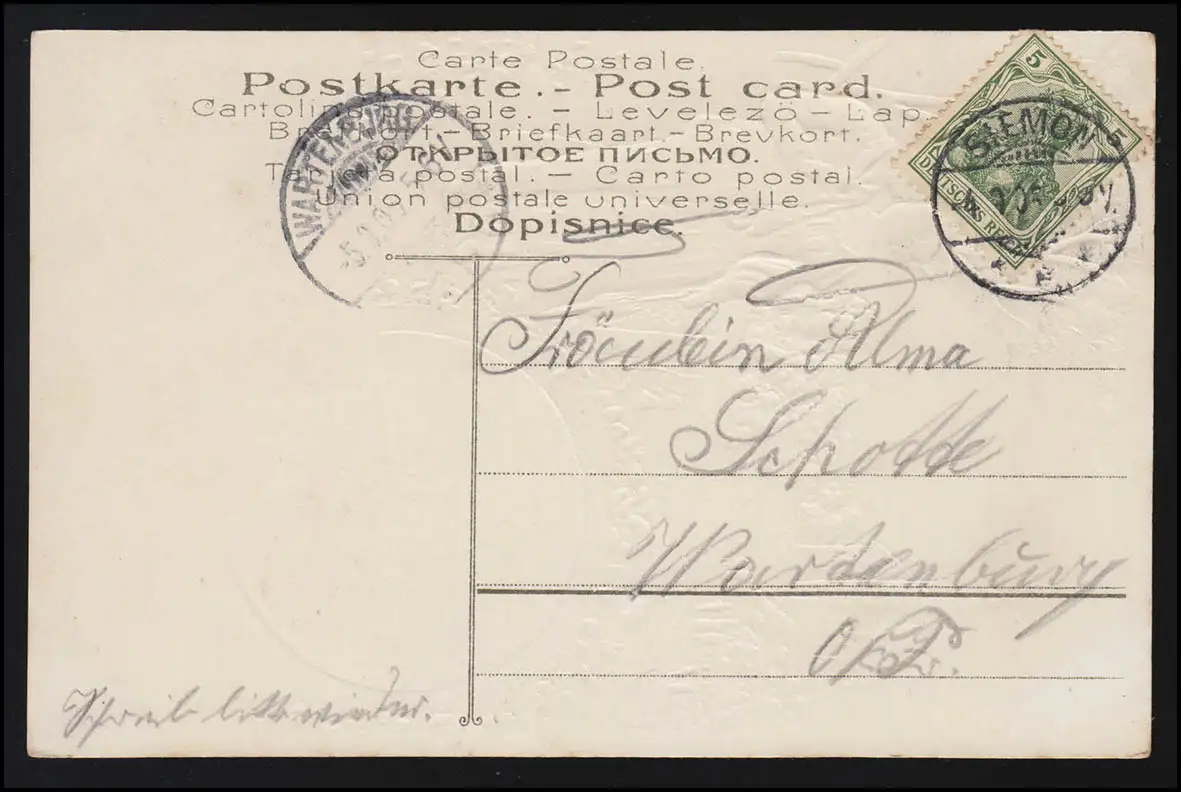 Carte Postale.
Postkarte. - Post card.
Cartolina postale. - Levelezö - Lap.
Brefkort.- Briefkaart.- Brevkort.
ОТКРЫТОЕ ПИСЬМО.
Tarjeta postal. - Carto postal.
Union postale universelle.
Dopisnice.
5
5
REICH
SALEMON
WARTENBURG
Fräulein Alma
Schotte
Wartenburg
Schreib bitte wieder.